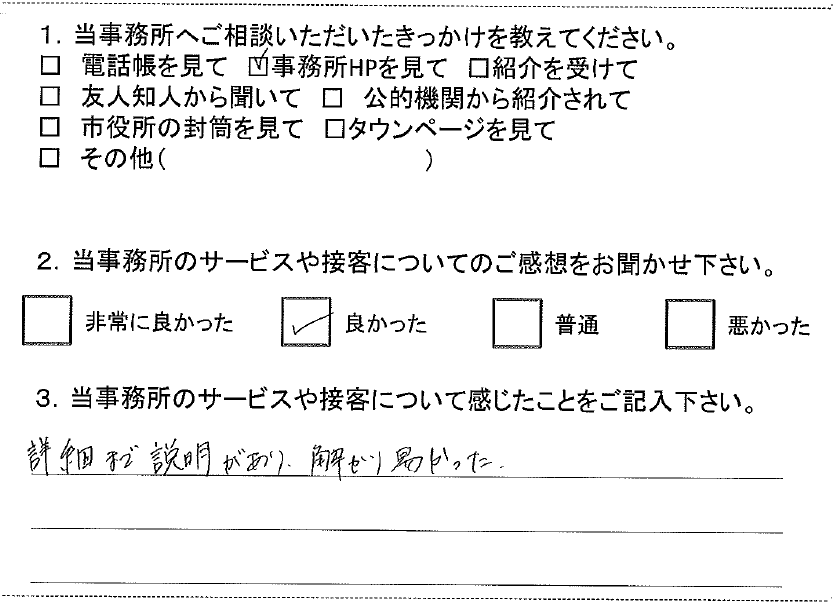 1．当事務所へご相談いただいたきっかけを教えてください。
□ 電話帳を見て ☑事務所HPを見て □紹介を受けて
□ 友人知人から聞いて □ 公的機関から紹介されて
□ 市役所の封筒を見て □タウンページを見て
□ その他(　　　　　　　　　　)
2．当事務所のサービスや接客についてのご感想をお聞かせ下さい。
□ 非常に良かった ☑ 良かった □ 普通 □ 悪かった
3．当事務所のサービスや接客について感じたことをご記入下さい。
詳細まで説明があり、解かり易かった.